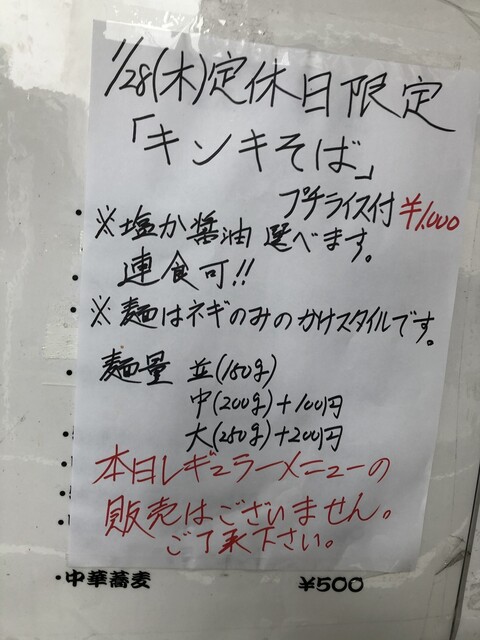 1/28(木)定休日限定
「キンキそば」
プチライス付 ¥1,000
※塩か醤油選べます。
連食可!!
※麺はネギのみのかけスタイルです。
麺量 並(150g)
中(200g)+100円
大(250g)+200円
本日レギュラーメニューの
販売はございません。
ご了承下さい。
・中華蕎麦 ¥500